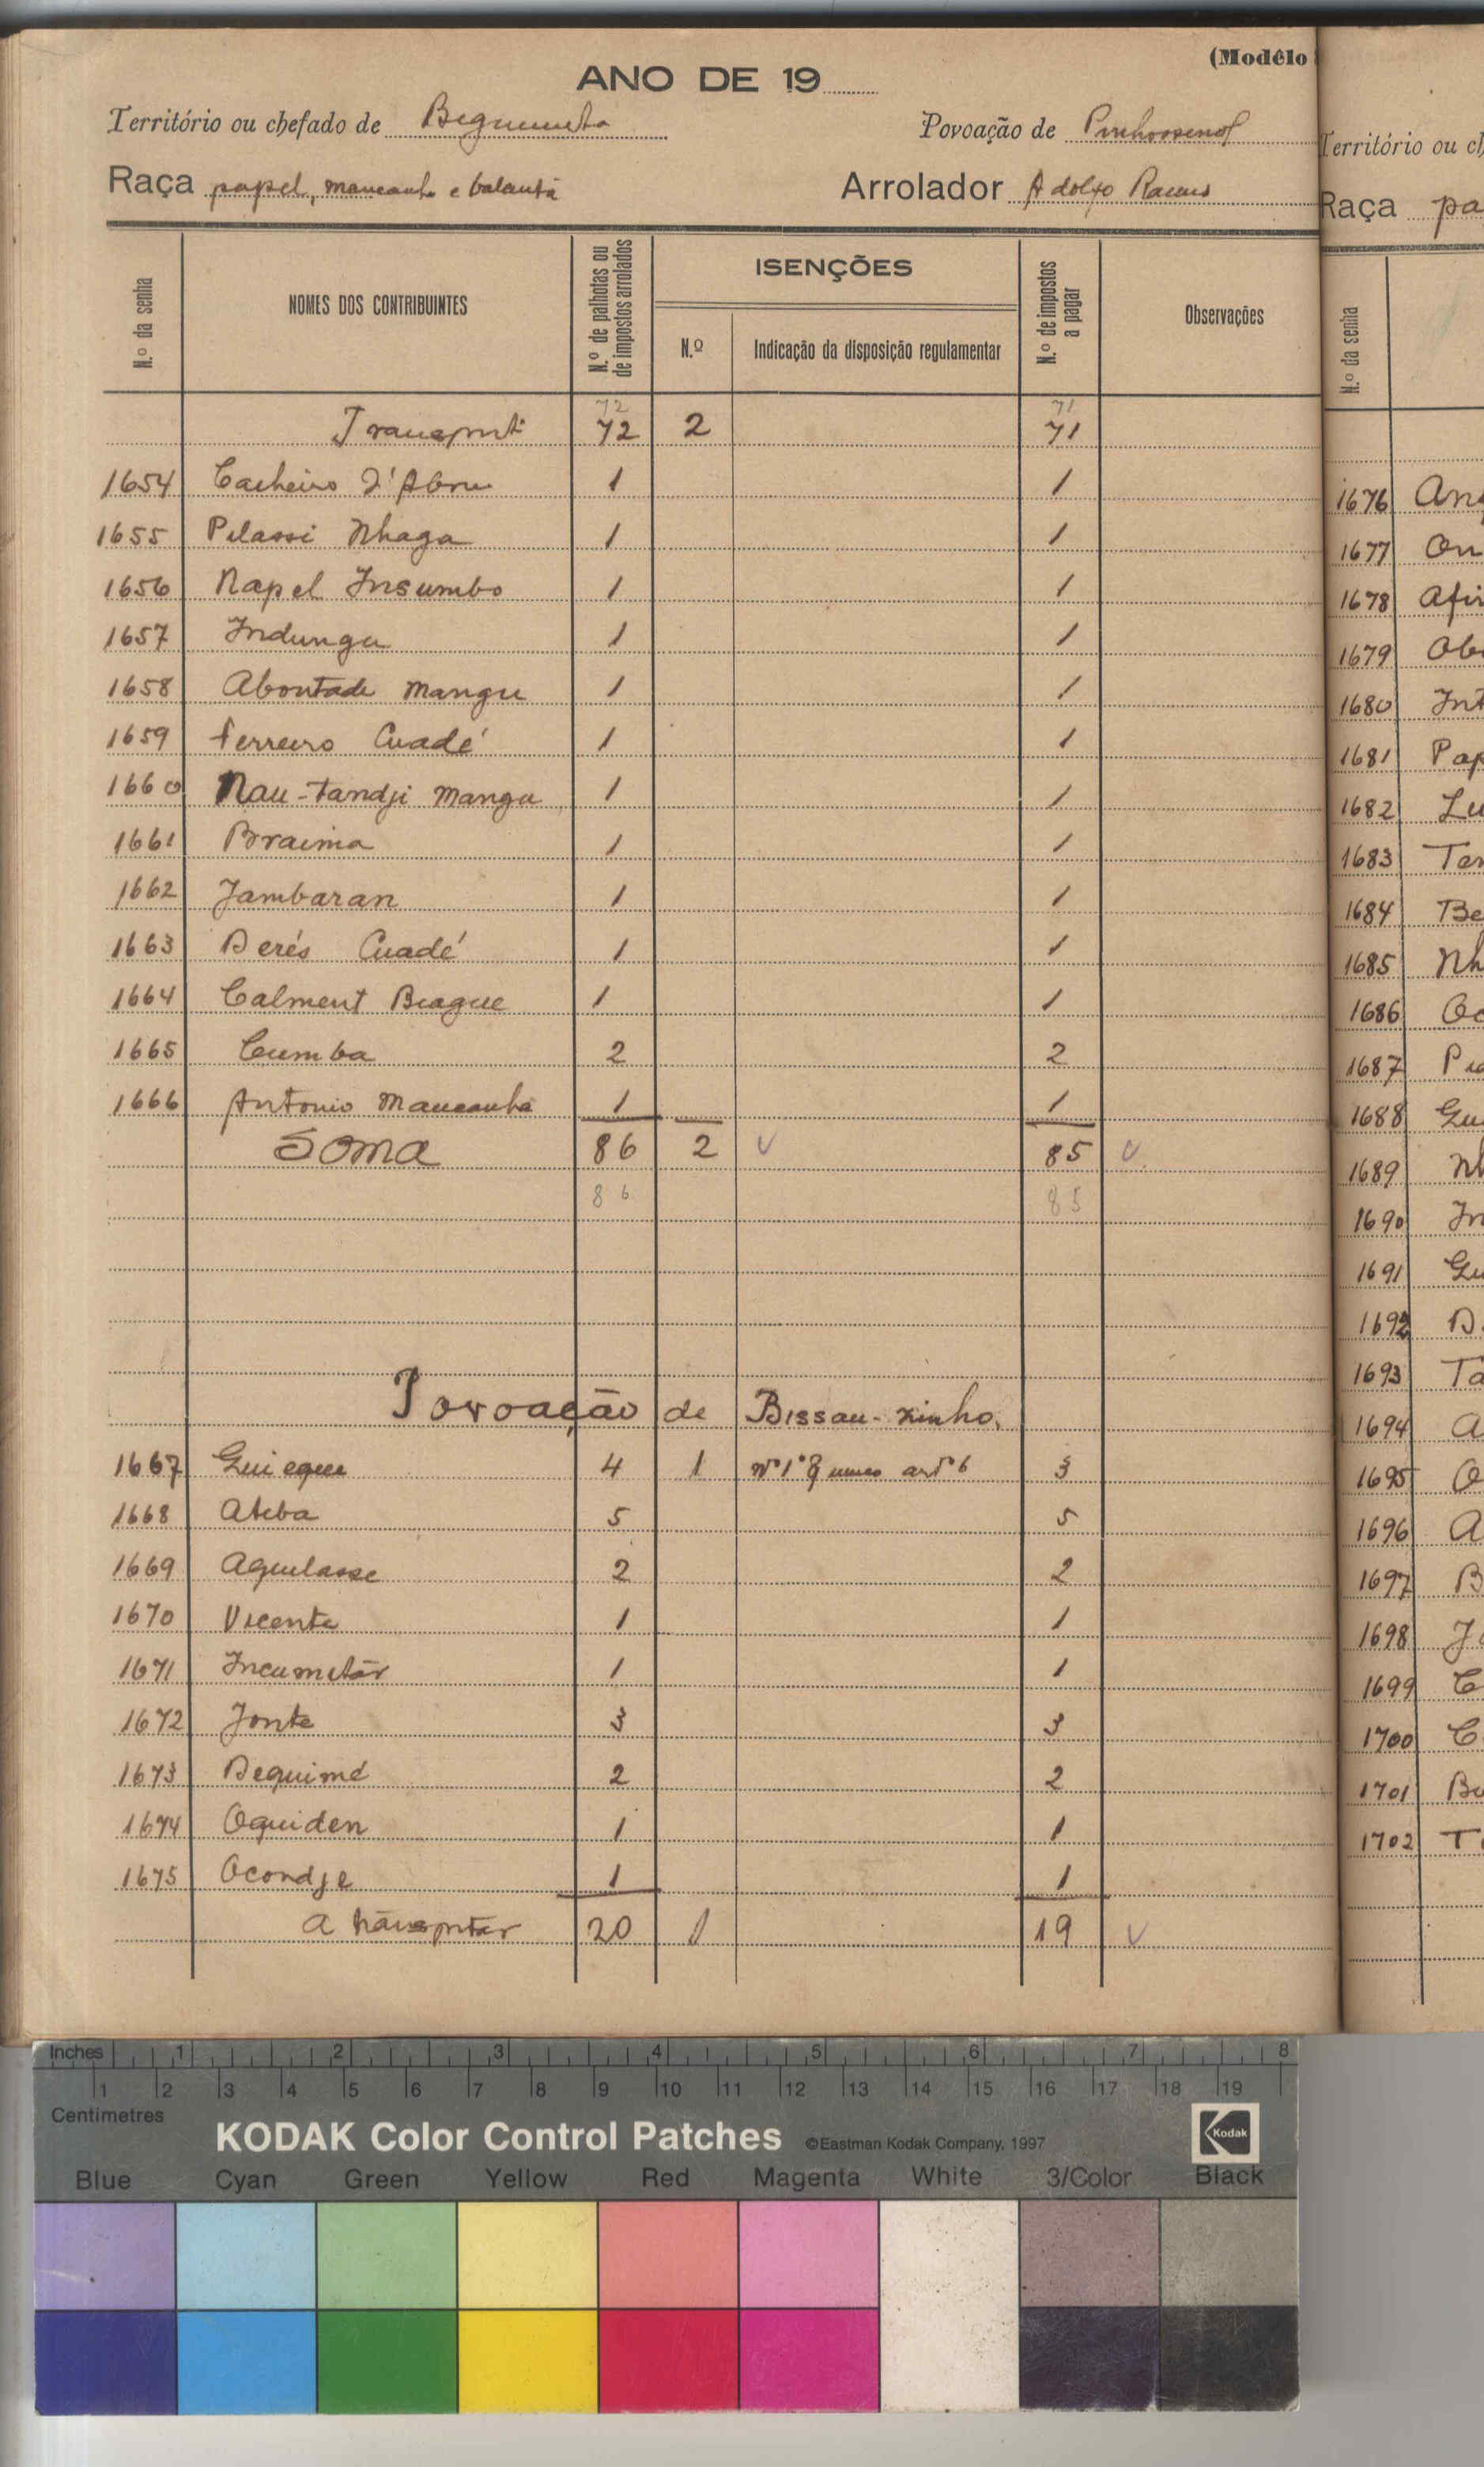 (Modêlo
ANO DE 19
Território ou chefado de
Povoação de
Raça papel, mancanha e balanta
Arrolador Adolfo Ramos
N.º da senha
NOMES DOS CONTRIBUINTES
N.º de palhotas ou de impostos arrolados
ISENÇÕES
N.º
Indicação da disposição regulamentar
N.º de impostos a pagar
Observações
72 71
Transporte 72 2 71
1654 Cacheiro D'Abou 1 1
1655 Pelassi Nhaga 1 1
1656 Napel Insumbo 1 1
1657 Indungu 1 1
1658 Aboutade Mangu 1 1
1659 Ferreiro Cuadé 1 1
1660 Nau-Tandji Mangu 1 1
1661 Braima 1 1
1662 Jambaran 1 1
1663 Derés Cuadé 1 1
1664 Calment Biague 1 1
1665 Cumba 2 2
1666 Antonio Mancanha 1 1
Soma 86 2 85
86 85
Povoação de Bissau-zinho.
1667 Guiegue 4 1 Nº 1º § unico artº 6 3
1668 Ateba 5 5
1669 Aguilasse 2 2
1670 Vicente 1 1
1671 Incumitár 1 1
1672 Jonte 3 3
1673 Dequimé 2 2
1674 Oquiden 1 1
1675 Ocondje 1 1
A transportar 20 1 19
Território ou ch
Raça pa
N.º da senha
1676 An
1677 On
1678 Afi
1679 Ob
1680 Int
1681 Pap
1682 Lu
1683 Ter
1684 Be
1685 Nh
1686 Oc
1687 P
1688 Gu
1689 Nh
1690 In
1691 Gu
1692 D
1693 Ta
1694 A
1695 O
1696 A
1697 B
1698 J
1699 C
1700 C
1701 Bu
1702 T
Inches 1 2 3 4 5 6 7 8
1 2 3 4 5 6 7 8 9 10 11 12 13 14 15 16 17 18 19
Centimetres
KODAK Color Control Patches ©Eastman Kodak Company, 1997 Kodak
Blue Cyan Green Yellow Red Magenta White 3/Color Black